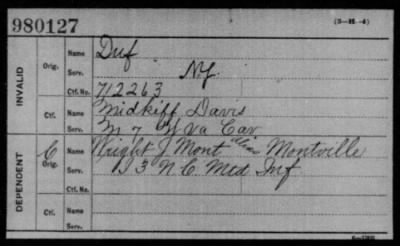 980127 (3-H.-4)
INVALID
Orig. Name Duf
Serv. N.Y.
Ctf. No. 712263
Ctf. Name Midkiff Davis
Serv. M 7 W Va Cav.
DEPENDENT
C Orig. Name Wright J Mont alias Montville
Serv. D 3 N.C. Med Inf
Ctf. No.
Ctf. Name
Serv.